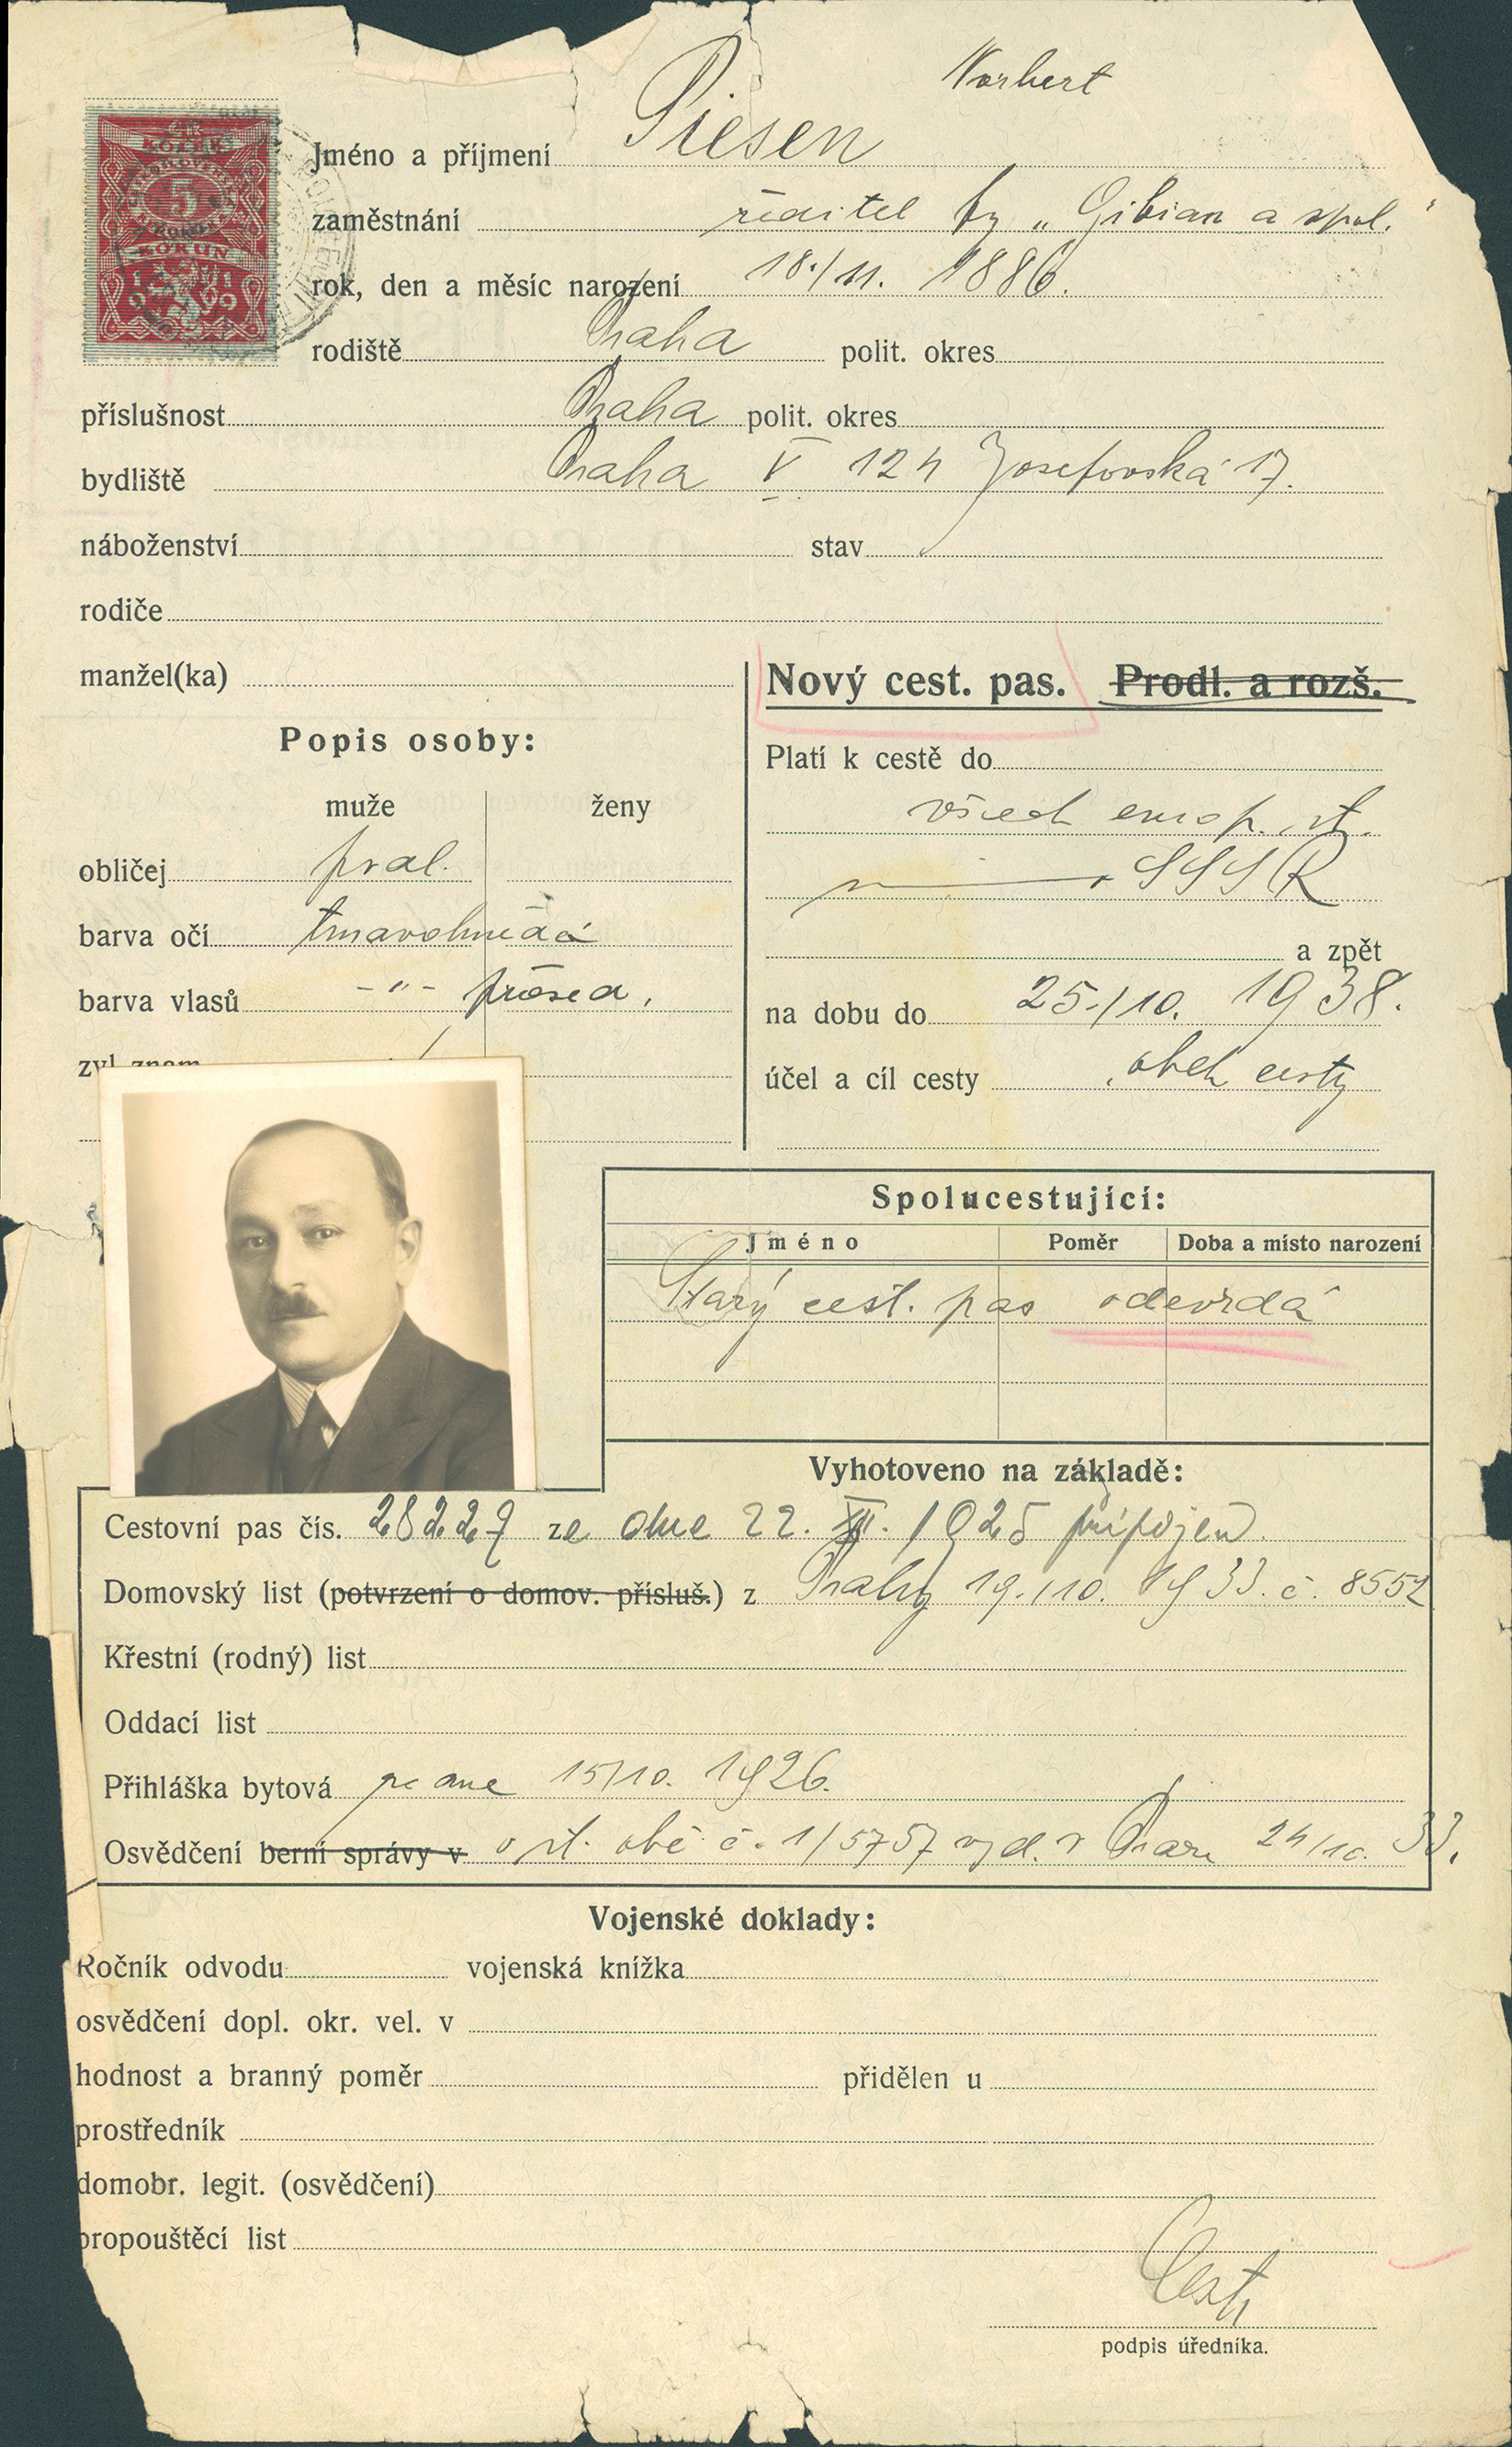 Norbert
Jméno a příjmení Piesen
zaměstnání ředitel fy „Gibian a spol.“
rok, den a měsíc narození 18./11. 1886.
rodiště Praha polit. okres
příslušnost Praha polit. okres
bydliště Praha V 124 Josefovská 17.
náboženství stav
rodiče
manžel(ka)
Nový cest. pas. Prodl. a rozš.
Popis osoby:
muže ženy
obličej
barva očí tmavohnědá
barva vlasů -"- prošed.
zvl. znam.
Platí k cestě do
všech europ. st.
SSSR
a zpět
na dobu do 25./10. 1938.
účel a cíl cesty obch cesty
Spolucestující:
Jméno Poměr Doba a místo narození
Starý cest. pas odevzdá
Vyhotoveno na základě:
Cestovní pas čís. 28227 ze dne 22. XII. 1925 připojen
Domovský list (potvrzení o domov. přísluš.) z Prahy 19./10. 1933. č. 8552
Křestní (rodný) list
Oddací list
Přihláška bytová ze dne 15/10. 1926.
Osvědčení berní správy v o st. obč. č. 1/5757 vyd. v Praze 24/10. 33.
Vojenské doklady:
Ročník odvodu vojenská knížka
osvědčení dopl. okr. vel. v
hodnost a branný poměr přidělen u
prostředník
domobr. legit. (osvědčení)
propouštěcí list
podpis úředníka.
5
KORUN